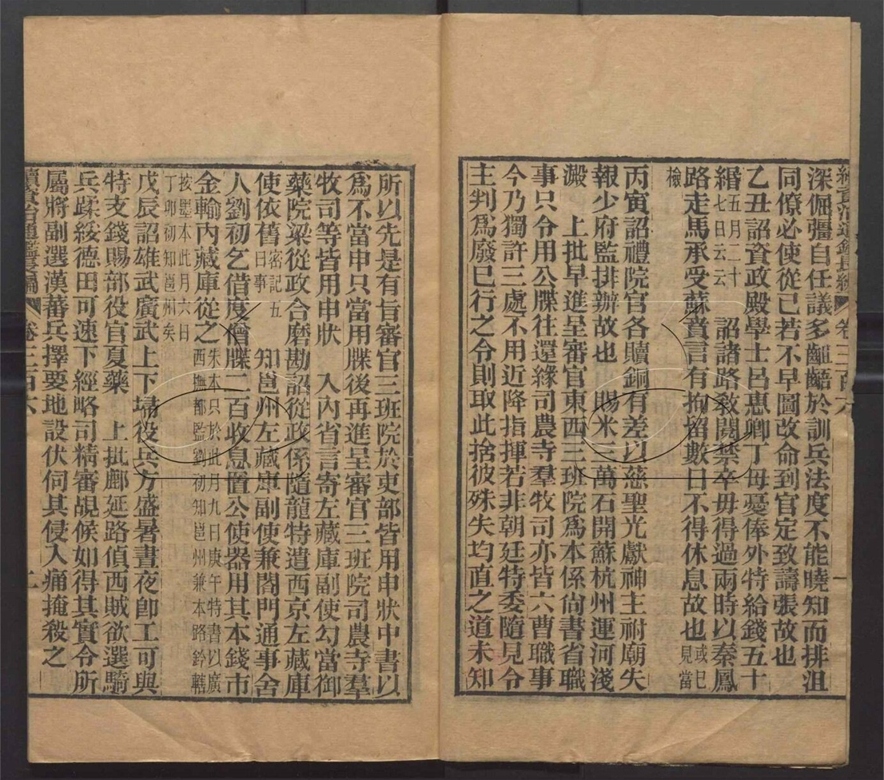 深倔彊自任議多齟齬於訓兵法度不能曉知而排沮
同僚必使從已若不早圖改命到官定致譸張故也
乙丑詔資政殿學士呂惠卿丁母憂俸外特給錢五十
緡五月二十七日云云 詔諸路敎閱禁卒毋得過兩時以秦鳳
路走馬承受蘇賁言有拘留數日不得休息故也或已見當
檢
丙寅詔禮院官各贖銅有差以慈聖光獻神主祔廟失
報少府監排辦故也 賜米三萬石開蘇杭州運河淺
澱 上批早進呈審官東西三班院爲本係尚書省職
事只令用公牒往還緣司農寺羣牧司亦皆六曹職事
今乃獨許三處不用近降指揮若非朝廷特委隨見令
主判爲廢已行之令則取此捨彼殊失均直之道未知
續資治通鑑長編 卷三百六
所以先是有旨審官三班院於吏部皆用申狀中書以
爲不當申只當用牒後再進呈審官三班院司農寺羣
牧司等皆用申狀 入內省言寄左藏庫副使勾當御
藥院梁從政合磨勘詔從政係隨龍特遣西京左藏庫
使依舊密記五日事 知邕州左藏庫副使兼閤門通事舍
人劉初乞借度僧牒二百收息置公使器用其本錢市
金輸內藏庫從之朱本只於此月九日庚午特書以廣西撫都監劉初知邕州兼本路鈐轄
按墨本此月六日丁卯初知邕州矣
戊辰詔雄武廣武上下埽役兵方盛暑晝夜卽工可與
特支錢賜部役官夏藥 上批鄜延路偵西賊欲選騎
兵蹂綏德田可速下經略司精審覘候如得其實令所
屬將副選漢蕃兵擇要地設伏伺其侵入痛掩殺之
續資治通鑑長編 卷三百六 二